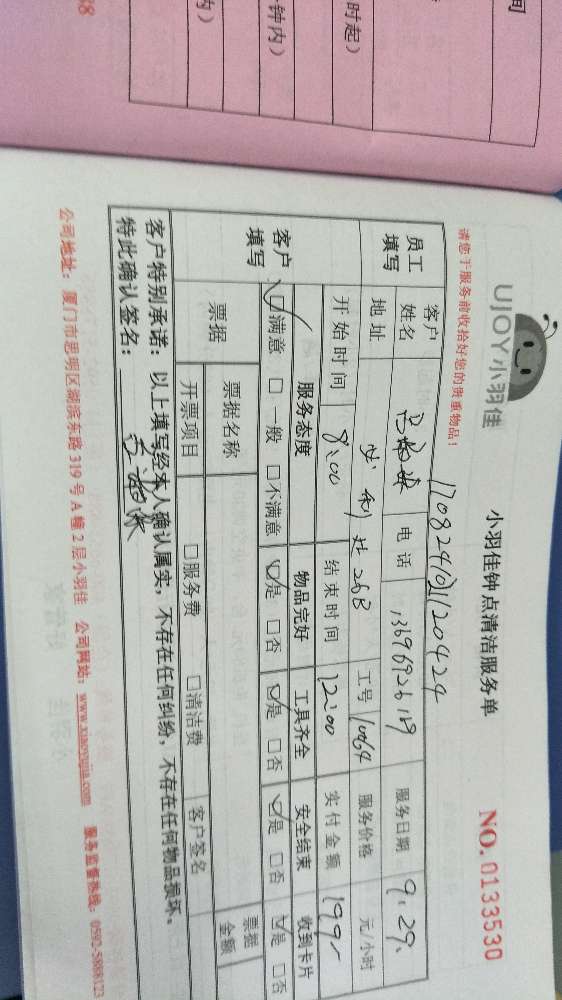 间
时起）
钟内）
内）
UJOY小羽佳
小羽佳钟点清洁服务单
NO. 0133530
请您于服务前收拾好您的贵重物品！
员工填写
客户姓名
电话 13696926119
服务日期 9.29.
地址
26B
工号 1064
服务价格 元/小时
开始时间 8:00
结束时间 12:00
实付金额 199-
客户填写
服务态度 物品完好 工具齐全 安全结束 收到卡片
☑满意 □一般 □不满意 ☑是 □否 ☑是 □否 ☑是 □否 ☑是 □否
票据 票据名称 票据金额
开票项目 □服务费 □清洁费 客户签名
客户特别承诺：以上填写经本人确认属实，不存在任何纠纷，不存在任何物品损坏。
特此确认签名：
公司地址：厦门市思明区湖滨东路 319 号 A 幢 2 层小羽佳 公司网站：www.xiaoyujia.com 服务监督热线：0592-5888123